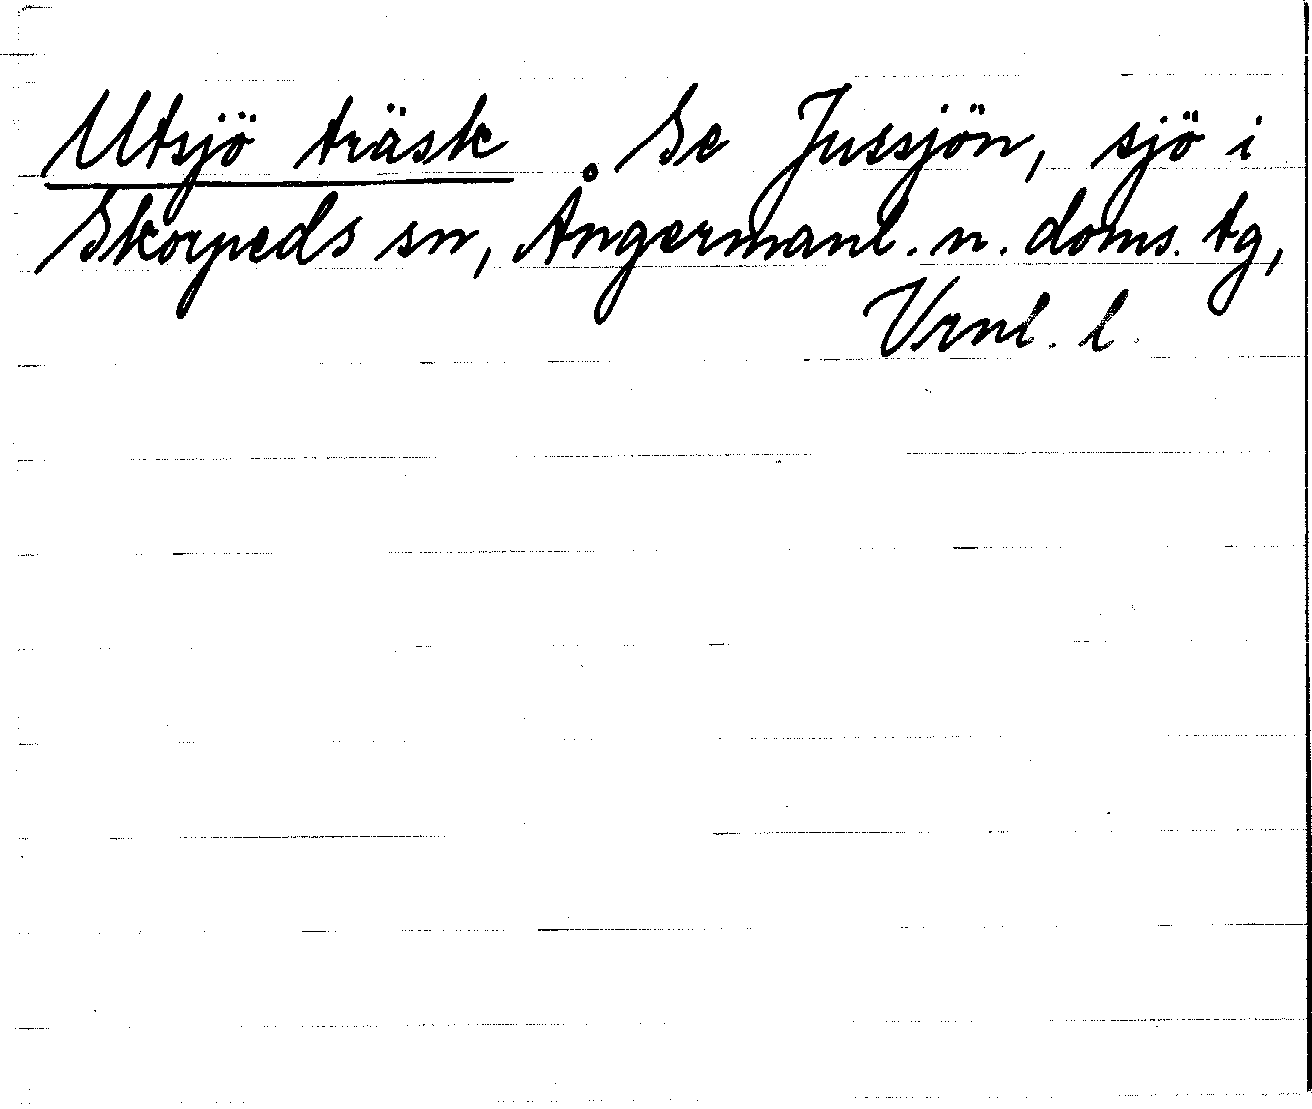 Utsjö träsk. Se Jussjön, sjö i
Skorpeds sn, Ångermanl. n. doms. tg,
Vrnl. l.